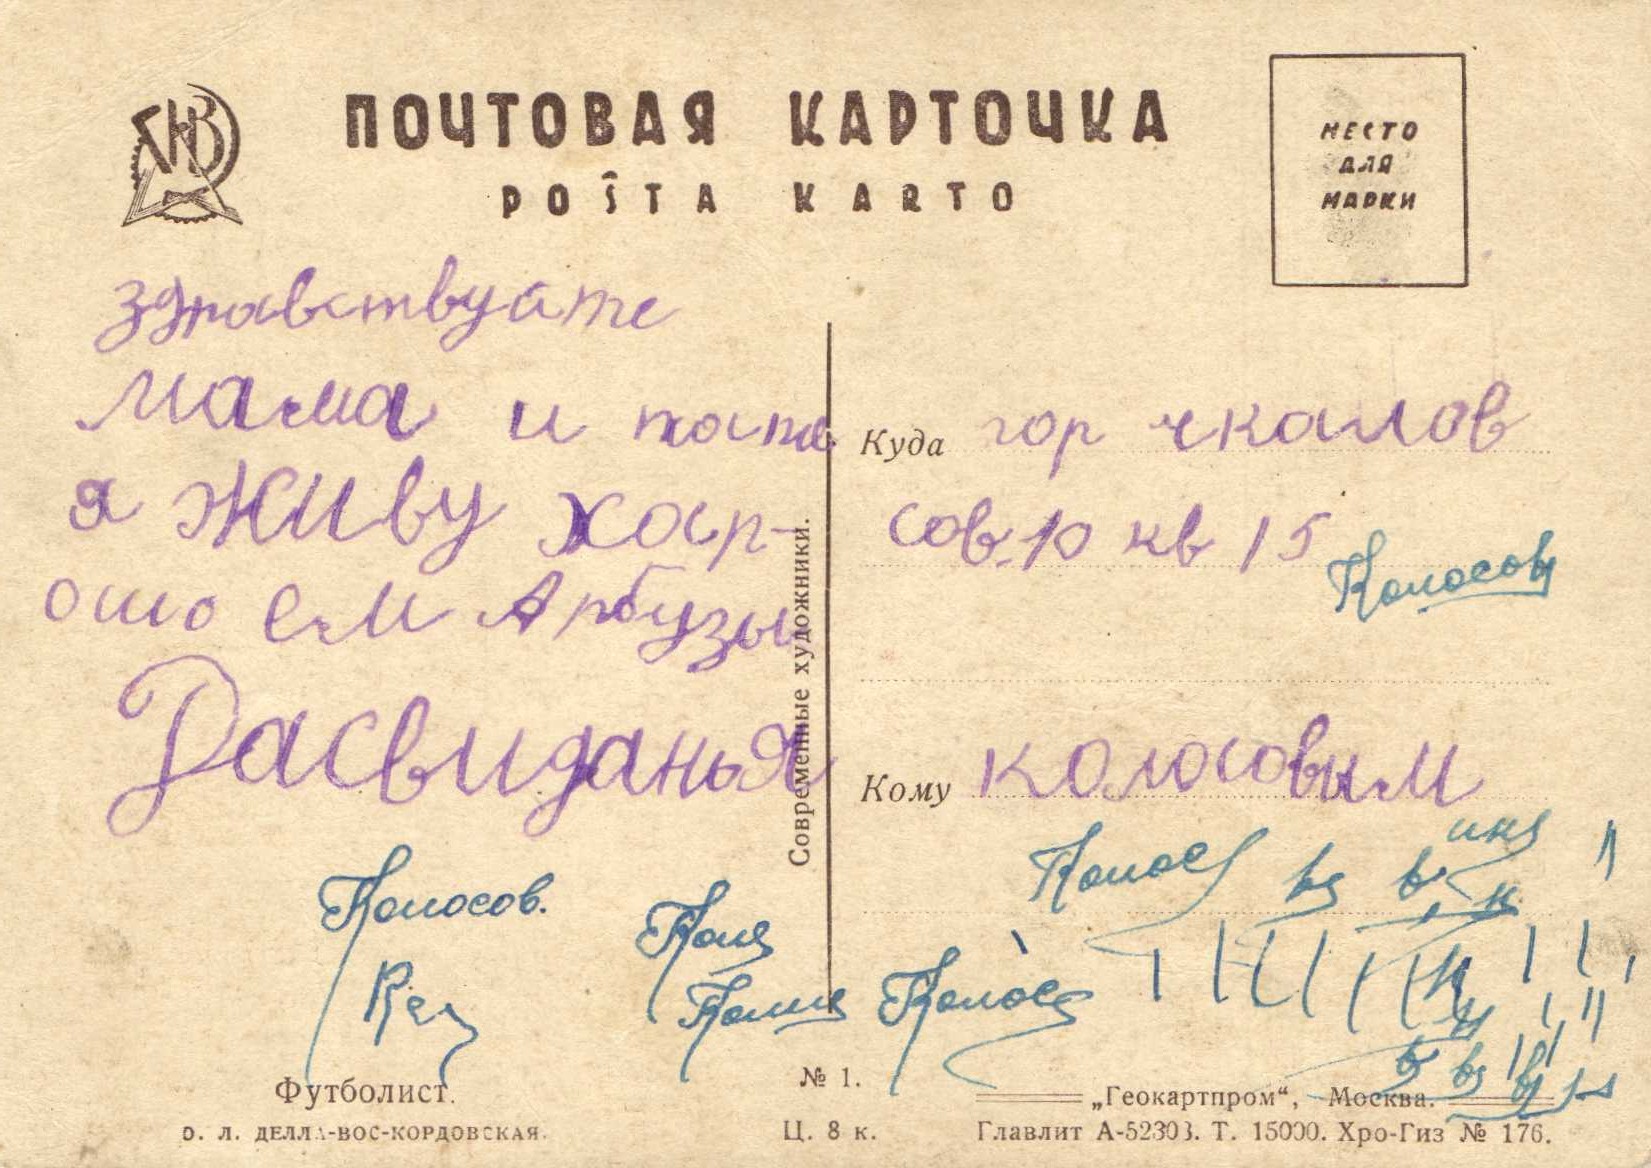 ПОЧТОВАЯ КАРТОЧКА
POŜTA KARTO
МЕСТО
ДЛЯ
МАРКИ
здравствуйте
мама и
я живу хоср-
ошо ем Арбузы
Расвиданья
Современные художники.
Куда гор чкалов
сов. 10 кв 15
Колосов
Кому колосовым
Колосов.
Коля
Коля
Колос
Колос
Футболист.
О. Л. ДЕЛЛА-ВОС-КОРДОВСКАЯ.
№ 1.
Ц. 8 к.
„Геокартпром“, Москва.
Главлит А-52303. Т. 15000. Хро-Гиз № 176.